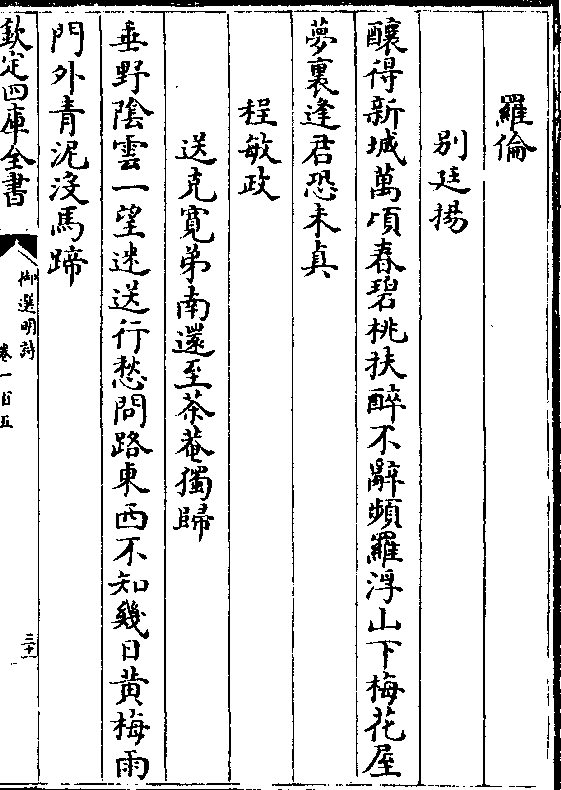 羅倫
別廷揚
釀得新城萬頃春碧桃扶醉不辭頻羅浮山下梅花屋
夢裏逢君恐未真
程敏政
送克寬弟南還至茶菴獨歸
垂野陰雲一望迷送行愁問路東西不知幾日黄梅雨
門外青泥沒馬蹄
欽定四庫全書
御選明詩
卷一百五
三十一